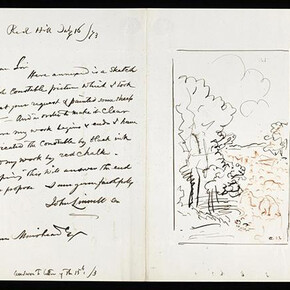 Red Hill July 16/73
Dear Sir
Here annexed is a Sketch
of Constable picture which I took
at your request & painted some sheep
And in order to make it Clear
where my work begins & ends I have
created the Constable by black ink
& my work by red Chalk.
Hoping this will answer the end
& purpose I am yours faithfully
John Linnell Sr
Muirhead Esq
Answer to letter of the 15th